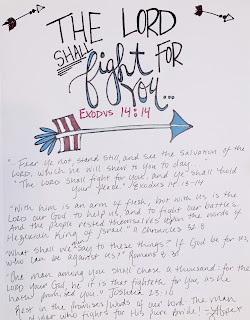 THE LORD
SHALL
fight FOR
YOU...
EXODUS 14:14
"Fear ye not, stand still, and see the salvation of the
LORD, which he will shew to you to day...
"The LORD shall fight for you, and ye shall hold
your peace." Exodus 14:13-14
"With him is an arm of flesh, but with us is the
LORD our God to help us, and to fight our battles.
And the people rested themselves upon the words of
Hezekiah King of Israel." II Chronicles 32:8
"What shall we then say to these things? If God be for us,
who can be against us?" Romans 8:31
"One man among you shall chase a thousand: for the
LORD your God, he it is that fighteth for you, as he
hath promised you." Joshua 23:10
Rest in the promises/words of our Lord. The man
of war who fights for His pure bride!